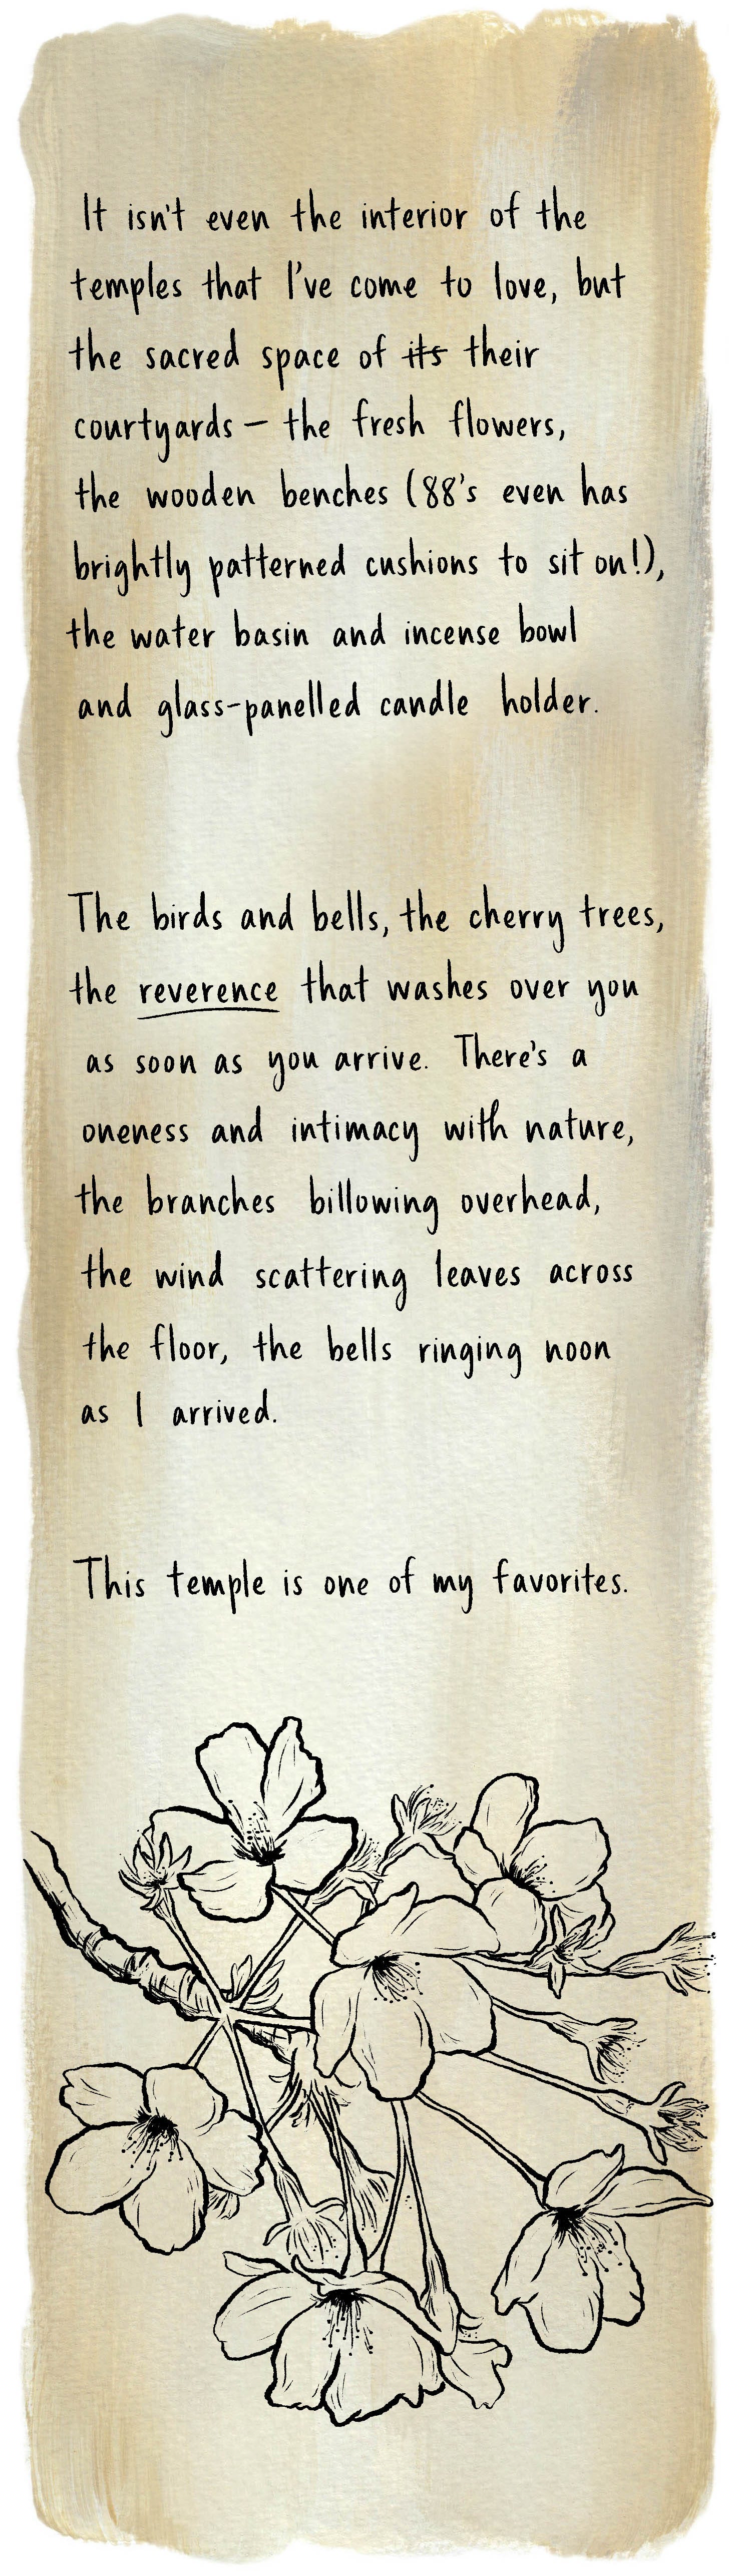 It isn't even the interior of the
temples that I've come to love, but
the sacred space of its their
courtyards – the fresh flowers,
the wooden benches (88's even has
brightly patterned cushions to sit on!),
the water basin and incense bowl
and glass-panelled candle holder.
The birds and bells, the cherry trees,
the reverence that washes over you
as soon as you arrive. There's a
oneness and intimacy with nature,
the branches billowing overhead,
the wind scattering leaves across
the floor, the bells ringing noon
as I arrived.
This temple is one of my favorites.